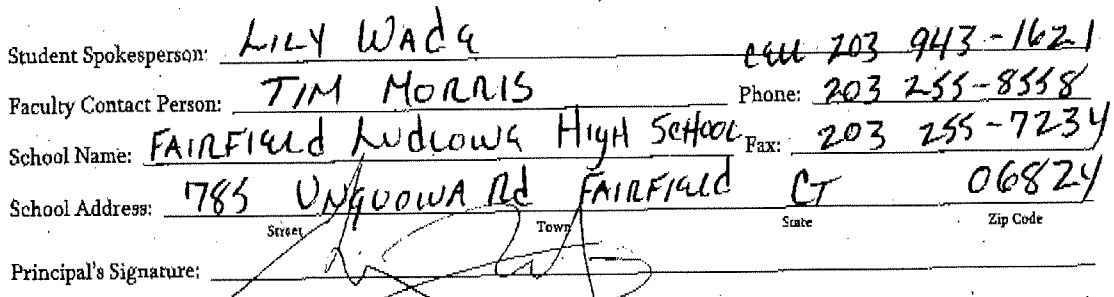 Student Spokesperson: LILY WADE cell 203 943-1621
Faculty Contact Person: TIM MORRIS Phone: 203 255-8558
School Name: FAIRFIELD LUDLOWE HIGH SCHOOL Fax: 203 255-7234
School Address: 785 UNQUOWA Rd FAIRFIELD CT 06824
Street Town State Zip Code
Principal's Signature: